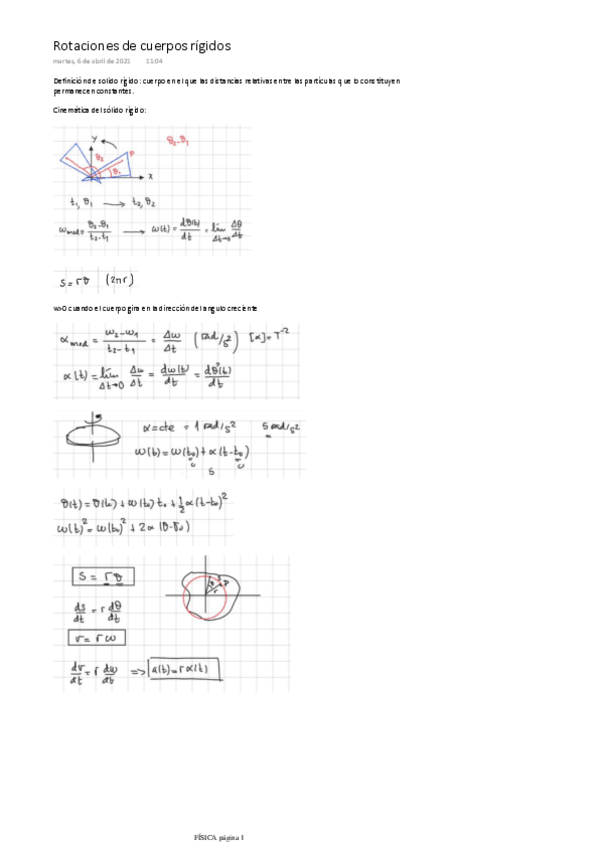 Rotaciones de cuerpos rígidos
martes, 6 de abril de 2021 11:04
Definición de solido rígido: cuerpo en el que las distancias relativas entre las partículas que lo constituyen
permanecen constantes.
Cinemática del sólido rígido:
Y θ₂-θ₁
θ₂ P
θ₁ X
t₁, θ₁ → t₂, θ₂
ω_med = (θ₂-θ₁)/(t₂-t₁) → ω(t) = dθ(t)/dt = lím Δt→0 Δθ/Δt
s = rθ (2πr)
w>0 cuando el cuerpo gira en la dirección del angulo creciente
α_med = (ω₂-ω₁)/(t₂-t₁) = Δω/Δt (rad/s²) [α] = T⁻²
α(t) = lím Δt→0 Δω/Δt = dω(t)/dt = dθ²(t)/dt
α = cte = 1 rad/s² 5 rad/s²
ω(t) = ω(t₀) + α(t-t₀)
θ(t) = θ(t₀) + ω(t₀) t₀ + ½ α(t-t₀)²
ω(t)² = ω(t₀)² + 2α(θ-θ₀)
S = rθ
ds/dt = r dθ/dt
v = rω
dv/dt = r dω/dt ⇒ a(t) = rα(t)
FÍSICA página 1